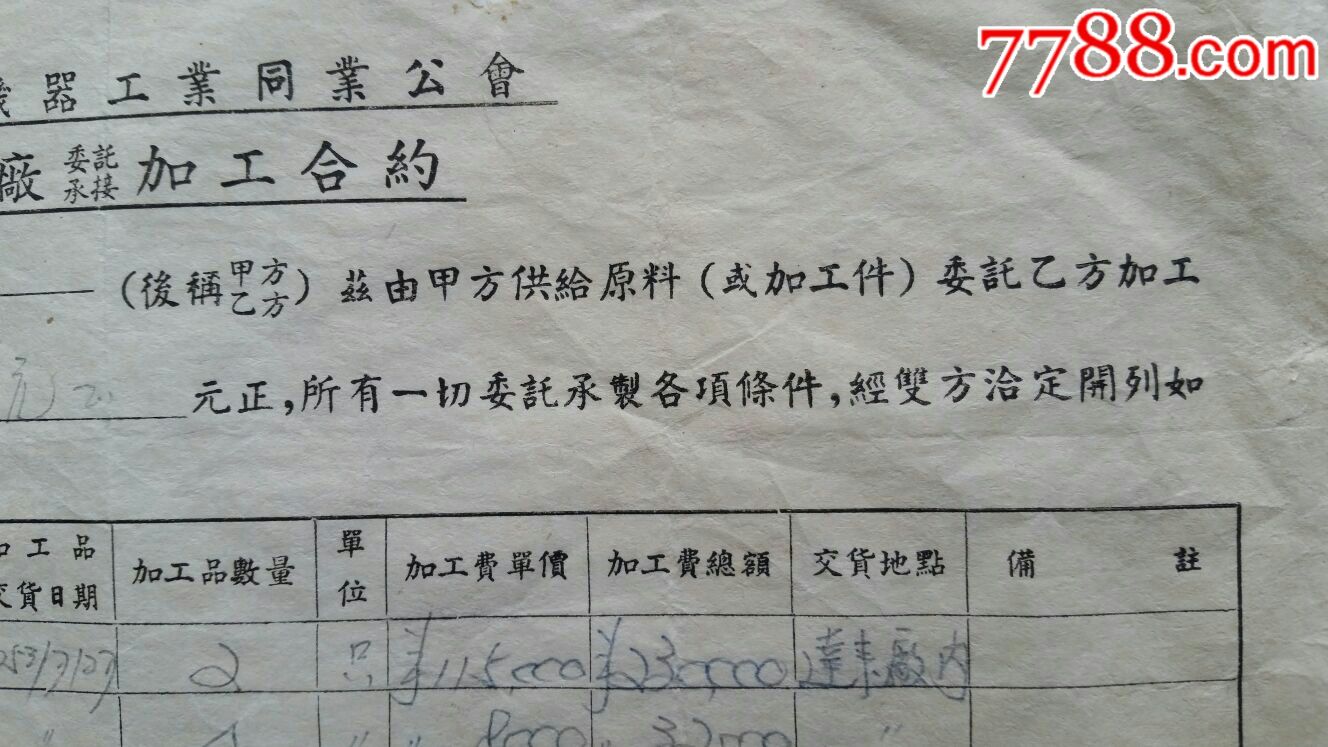 7788.com
器工業同業公會
廠委託承接加工合約
(後稱甲方乙方)茲由甲方供給原料(或加工件)委託乙方加工
元正,所有一切委託承製各項條件,經雙方洽定開列如
加工品交貨日期 加工品數量 單位 加工費單價 加工費總額 交貨地點 備註
2 只 ¥115,000 ¥230,000 廠內
〃 〃 〃 8000 〃 32000 〃